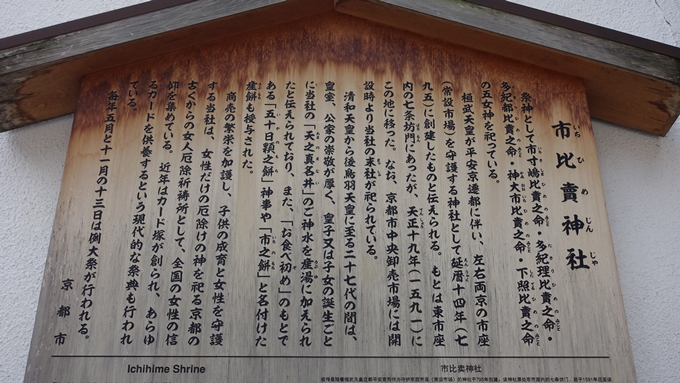 市比賣神社
いちひめじんじゃ
祭神として市寸嶋比賣之命・多紀理比賣之命・
多紀都比賣之命・神大市比賣之命・下照比賣之命
の五女神を祀っている。
桓武天皇が平安京遷都に伴い、左右両京の市座
(常設市場)を守護する神社として延暦十四年(七
九五)に創建したものと伝えられる。もとは東市座
内の七条坊門にあったが、天正十九年(一五九一)に
この地に移った。なお、京都市中央卸売市場には開
設時より当社の末社が祀られている。
清和天皇から後鳥羽天皇に至る二十七代の間は、
皇室、公家の崇敬が厚く、皇子又は子女の誕生ごと
に当社の「天之真名井」のご神水を産湯に加えられ
たと伝えられており、また、「お食べ初め」のもとで
ある「五十日顆之餅」神事や「市之餅」と名付けた
産餅も授与された。
商売の繁栄を加護し、子供の成育と女性を守護
する当社は、女性だけの厄除けの神を祀る京都の
古くからの女人厄除祈祷所として、全国の女性の信
仰を集めている。近年はカード塚が創られ、あらゆ
るカードを供養するという現代的な祭典も行われ
ている。
毎年五月と十一月の十三日は例大祭が行われる。
京都市
Ichihime Shrine
市比卖神社